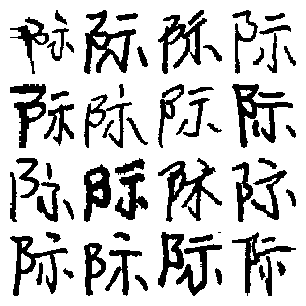 际际际际
际际际际
际际际际
际际际际